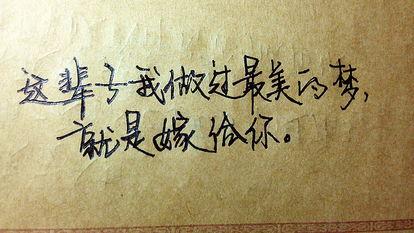 这辈子我做过最美的梦，
就是嫁给你。